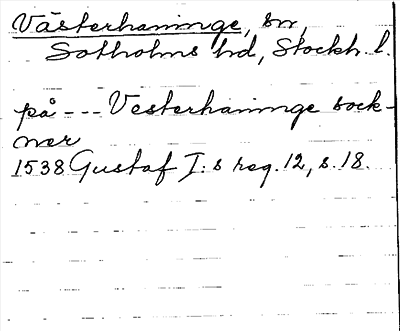 Västerhaninge, sn,
Sotholms hd, Stockh. l.
på --- Vesterhaninge sock-
ner
1538 Gustaf I:s reg. 12, s. 18.